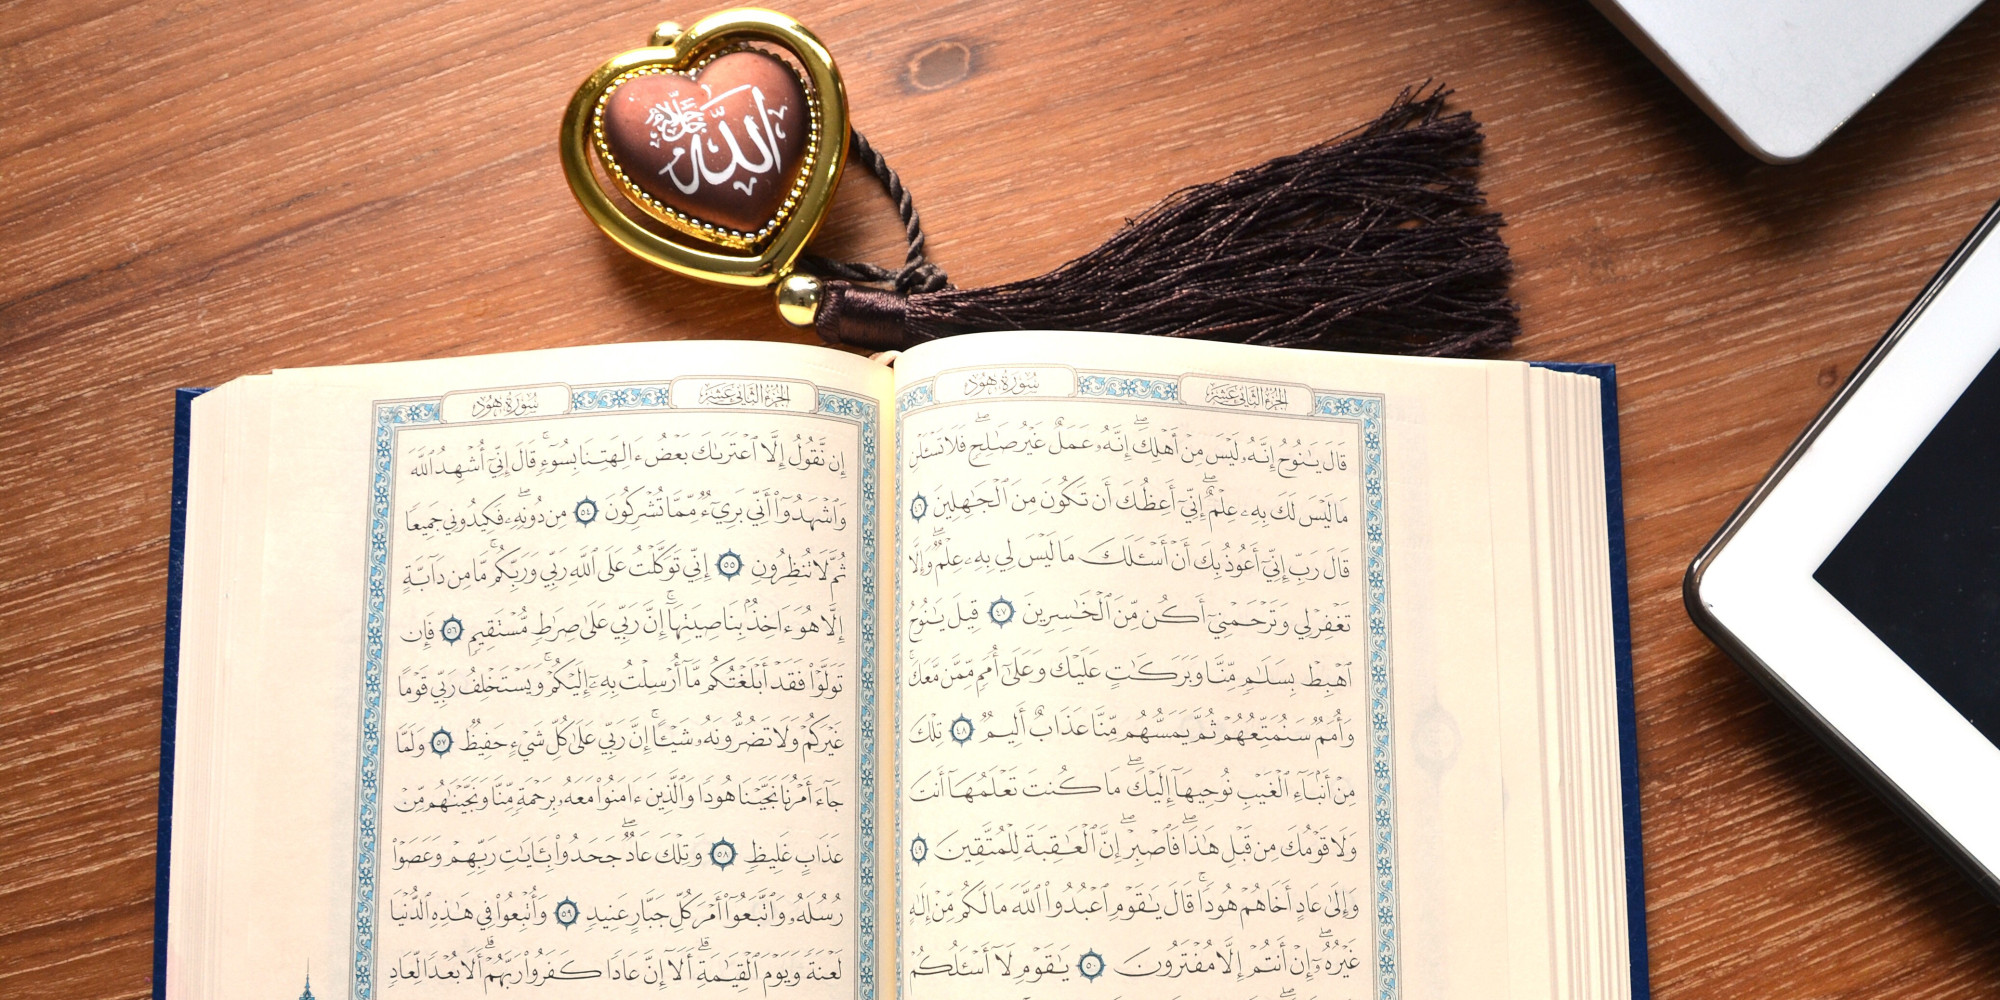 الله
جل جلاله
سُورَةُ هُودٍ
الجُزْءُ الثَّانِي عَشَرَ
قَالَ يَٰنُوحُ إِنَّهُۥ لَيْسَ مِنْ أَهْلِكَۖ إِنَّهُۥ عَمَلٌ غَيْرُ صَٰلِحٖۖ فَلَا تَسْـَٔلْنِ
مَا لَيْسَ لَكَ بِهِۦ عِلْمٌۖ إِنِّيٓ أَعِظُكَ أَن تَكُونَ مِنَ ٱلْجَٰهِلِينَ ٤٦
قَالَ رَبِّ إِنِّيٓ أَعُوذُ بِكَ أَنْ أَسْـَٔلَكَ مَا لَيْسَ لِي بِهِۦ عِلْمٌۖ وَإِلَّا
تَغْفِرْ لِي وَتَرْحَمْنِيٓ أَكُن مِّنَ ٱلْخَٰسِرِينَ ٤٧ قِيلَ يَٰنُوحُ
ٱهْبِطْ بِسَلَٰمٖ مِّنَّا وَبَرَكَٰتٍ عَلَيْكَ وَعَلَىٰٓ أُمَمٖ مِّمَّن مَّعَكَۚ
وَأُمَمٌ سَنُمَتِّعُهُمْ ثُمَّ يَمَسُّهُم مِّنَّا عَذَابٌ أَلِيمٌ ٤٨ تِلْكَ
مِنْ أَنۢبَآءِ ٱلْغَيْبِ نُوحِيهَآ إِلَيْكَۖ مَا كُنتَ تَعْلَمُهَآ أَنتَ
وَلَا قَوْمُكَ مِن قَبْلِ هَٰذَاۖ فَٱصْبِرْۖ إِنَّ ٱلْعَٰقِبَةَ لِلْمُتَّقِينَ ٤٩
وَإِلَىٰ عَادٍ أَخَاهُمْ هُودٗاۚ قَالَ يَٰقَوْمِ ٱعْبُدُوا۟ ٱللَّهَ مَا لَكُم مِّنْ إِلَٰهٍ
غَيْرُهُۥٓۖ إِنْ أَنتُمْ إِلَّا مُفْتَرُونَ ٥٠ يَٰقَوْمِ لَآ أَسْـَٔلُكُمْ
سُورَةُ هُودٍ
الجُزْءُ الثَّانِي عَشَرَ
إِن نَّقُولُ إِلَّا ٱعْتَرَىٰكَ بَعْضُ ءَالِهَتِنَا بِسُوٓءٖۗ قَالَ إِنِّيٓ أُشْهِدُ ٱللَّهَ
وَٱشْهَدُوٓا۟ أَنِّي بَرِيٓءٌ مِّمَّا تُشْرِكُونَ ٥٤ مِن دُونِهِۦۖ فَكِيدُونِي جَمِيعٗا
ثُمَّ لَا تُنظِرُونِ ٥٥ إِنِّي تَوَكَّلْتُ عَلَى ٱللَّهِ رَبِّي وَرَبِّكُمۚ مَّا مِن دَآبَّةٍ
إِلَّا هُوَ ءَاخِذٌۢ بِنَاصِيَتِهَآۚ إِنَّ رَبِّي عَلَىٰ صِرَٰطٖ مُّسْتَقِيمٖ ٥٦ فَإِن
تَوَلَّوْا۟ فَقَدْ أَبْلَغْتُكُم مَّآ أُرْسِلْتُ بِهِۦٓ إِلَيْكُمْۚ وَيَسْتَخْلِفُ رَبِّي قَوْمًا
غَيْرَكُمْ وَلَا تَضُرُّونَهُۥ شَيْـًٔاۚ إِنَّ رَبِّي عَلَىٰ كُلِّ شَيْءٍ حَفِيظٌ ٥٧ وَلَمَّا
جَآءَ أَمْرُنَا نَجَّيْنَا هُودٗا وَٱلَّذِينَ ءَامَنُوا۟ مَعَهُۥ بِرَحْمَةٖ مِّنَّا وَنَجَّيْنَٰهُم مِّنْ
عَذَابٍ غَلِيظٖ ٥٨ وَتِلْكَ عَادٌۖ جَحَدُوا۟ بِـَٔايَٰتِ رَبِّهِمْ وَعَصَوْا۟
رُسُلَهُۥ وَٱتَّبَعُوٓا۟ أَمْرَ كُلِّ جَبَّارٍ عَنِيدٖ ٥٩ وَأُتْبِعُوا۟ فِي هَٰذِهِ ٱلدُّنْيَا
لَعْنَةٗ وَيَوْمَ ٱلْقِيَٰمَةِۗ أَلَآ إِنَّ عَادٗا كَفَرُوا۟ رَبَّهُمْۗ أَلَا بُعْدٗا لِّعَادٖ